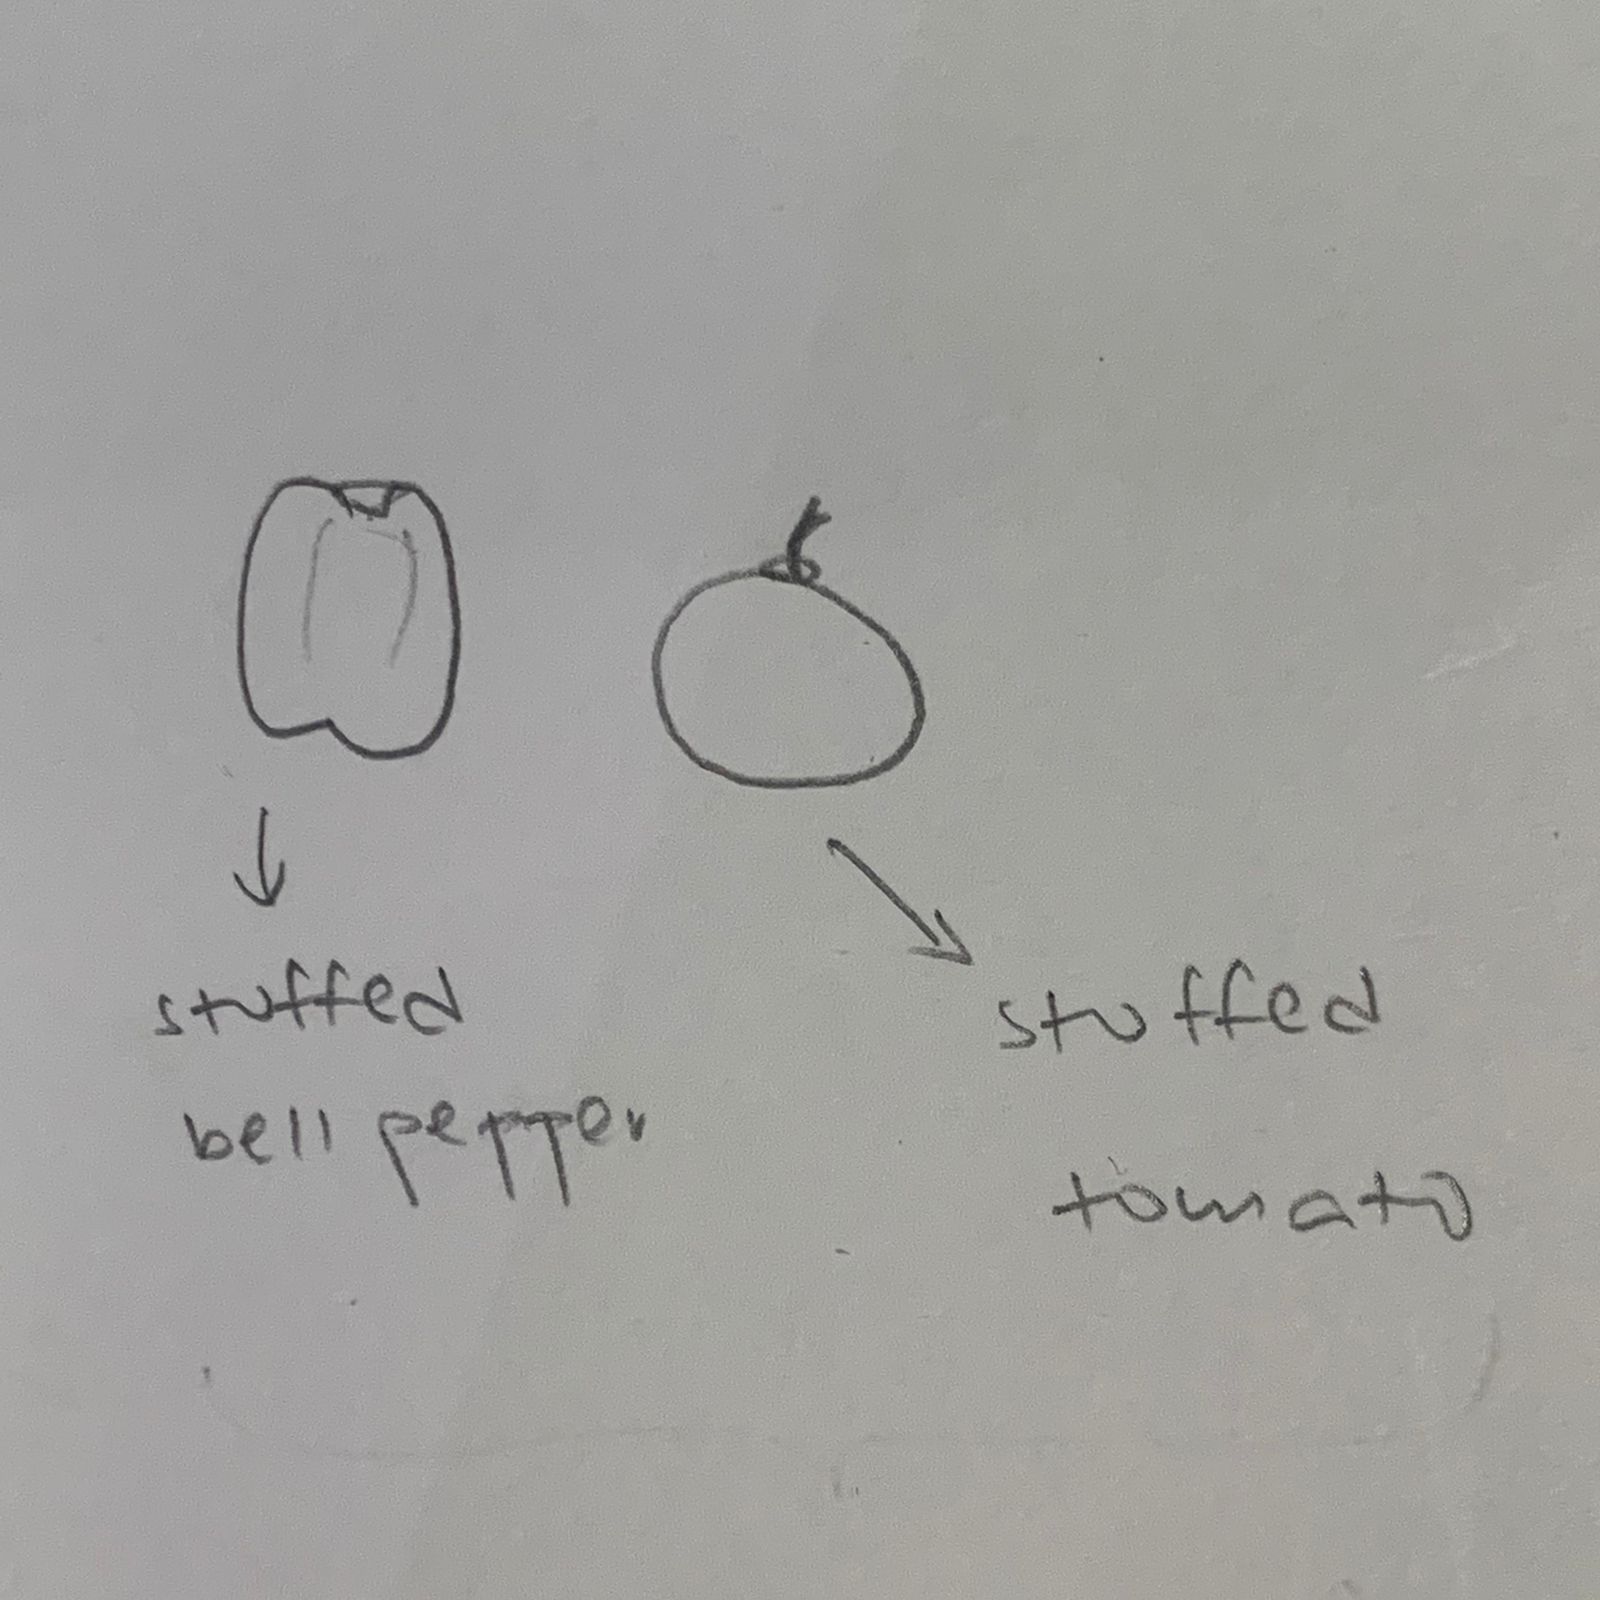 stuffed
bell pepper
stuffed
tomato